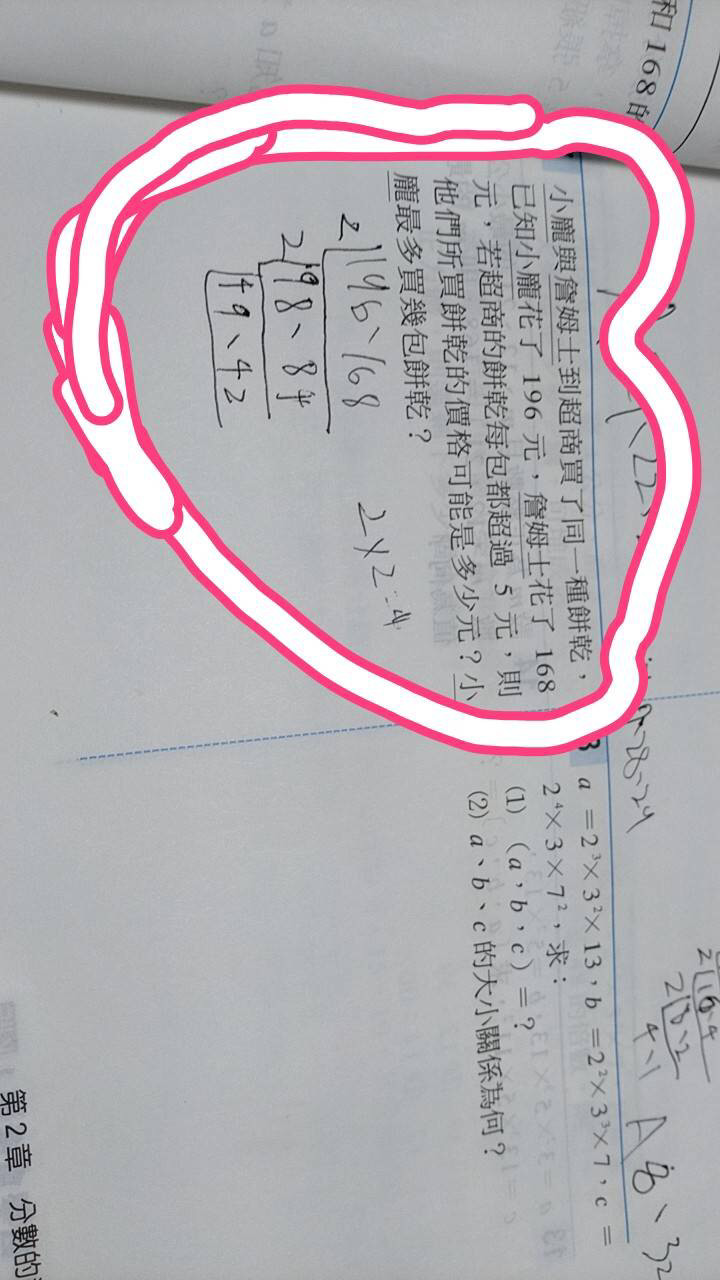 和 168 的
小龐與詹姆士到超商買了同一種餅乾，
已知小龐花了 196 元，詹姆士花了 168
元，若超商的餅乾每包都超過 5 元，則
他們所買餅乾的價格可能是多少元？小
龐最多買幾包餅乾？
2 196、168
2 98、84
49、42
2×2=4
3 a＝2³×3²×13，b＝2²×3³×7，c＝
2⁴×3×7²，求：
(1) (a，b，c)＝？
(2) a、b、c 的大小關係為何？
A 8、32
第 2 章 分數的